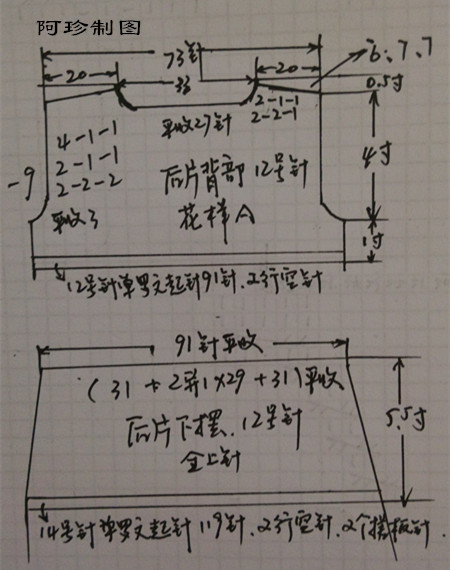 阿珍制图
73针
6、7、7
20
33
20
0.5寸
2-1-1
2-2-1
平收27针
4-1-1
2-1-1
2-2-2
平收3
-9
后片背部12号针
花样A
4寸
1寸
12号针单罗文起针91针、2行空针
91针平收
(31+2并1×29+31)平收
后片下摆、12号针
全上针
5.5寸
14号针单罗文起针119针、2行空针、2个挡板针.